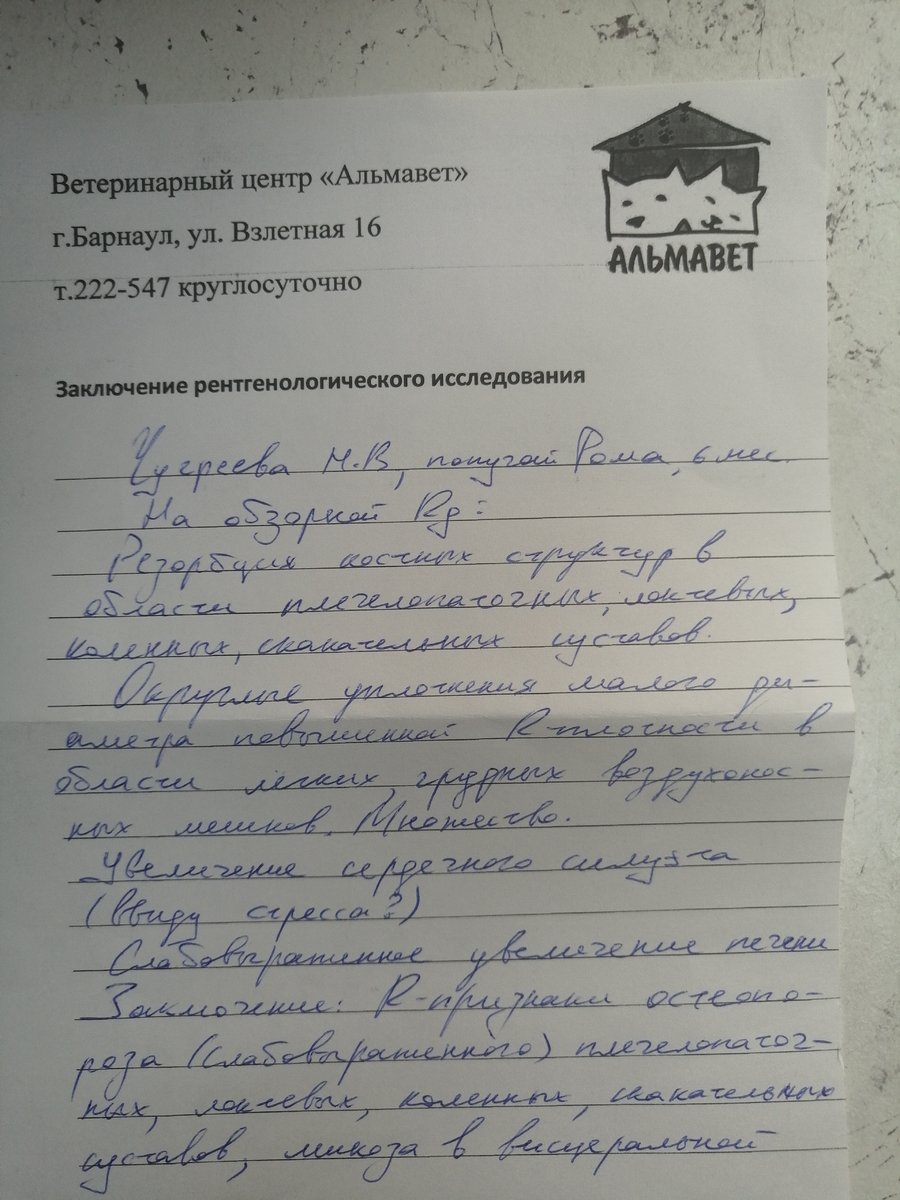 Ветеринарный центр «Альмавет»
г.Барнаул, ул. Взлетная 16
т.222-547 круглосуточно
АЛЬМАВЕТ
Заключение рентгенологического исследования
Чугреева Н.В, попугай Рома, 6 мес.
На обзорной Rg:
Резорбция костных структур в
области плечелопаточных, локтевых,
коленных, скакательных суставов.
Округлые уплотнения малого ди-
аметра повышенной R-плотности в
области легких, грудных воздухонос-
ных мешков. Множество.
Увеличение сердечного силуэта
(ввиду стресса?)
Слабовыраженное увеличение печени
Заключение: R-признаки остеопо-
роза (слабовыраженного) плечелопаточ-
ных, локтевых, коленных, скакательных
суставов, микоза в висцеральной